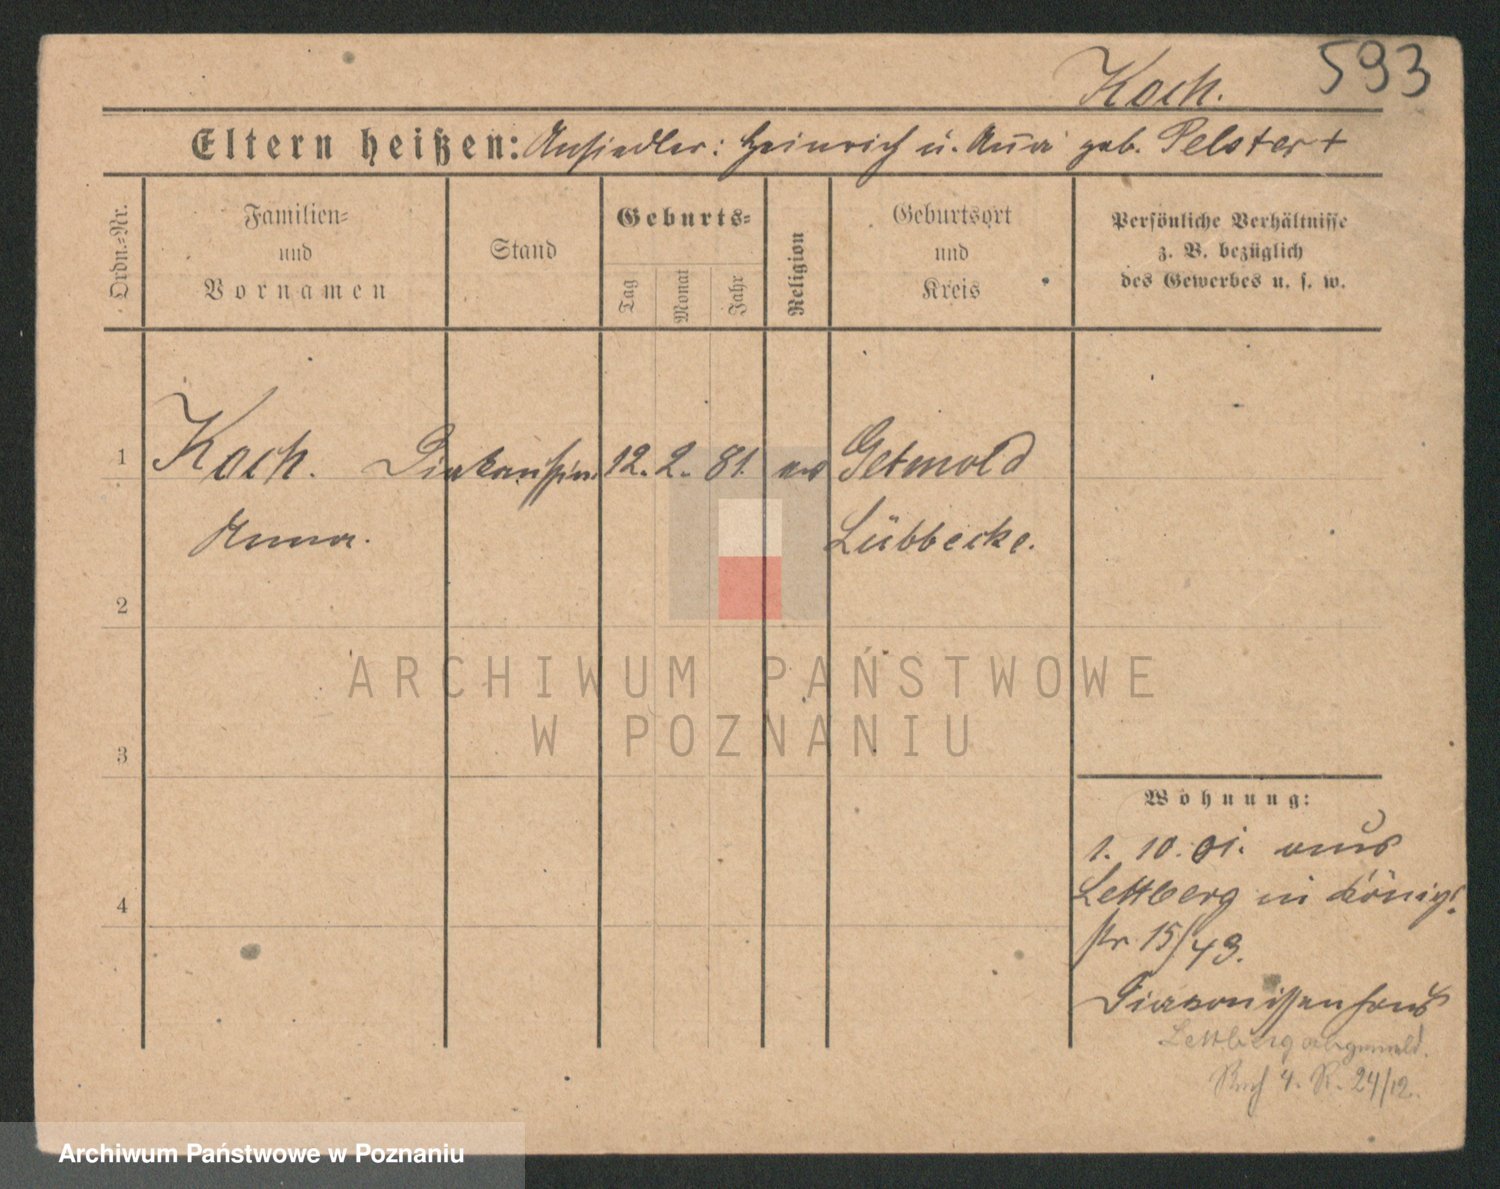 593
Koch.
Eltern heißen: Ansiedler: Heinrich u. Anna geb. Pelster +
Ordn.=Nr.
Familien=
und
Vornamen
Stand
Geburts=
Tag
Monat
Jahr
Religion
Geburtsort
und
Kreis
Persönliche Verhältnisse
z. B. bezüglich
des Gewerbes u. s. w.
1 Koch. Diakonissin 12. 2. 81. ev Getmold
Anna. Lübbecke.
2
3
4
Wohnung:
1. 10. 01. aus
Lettberg in Königs
str 15/43.
Diakonissenhaus
Lettberg abgemeld.
4. R. 24/12.
ARCHIWUM PAŃSTWOWE
W POZNANIU
Archiwum Państwowe w Poznaniu